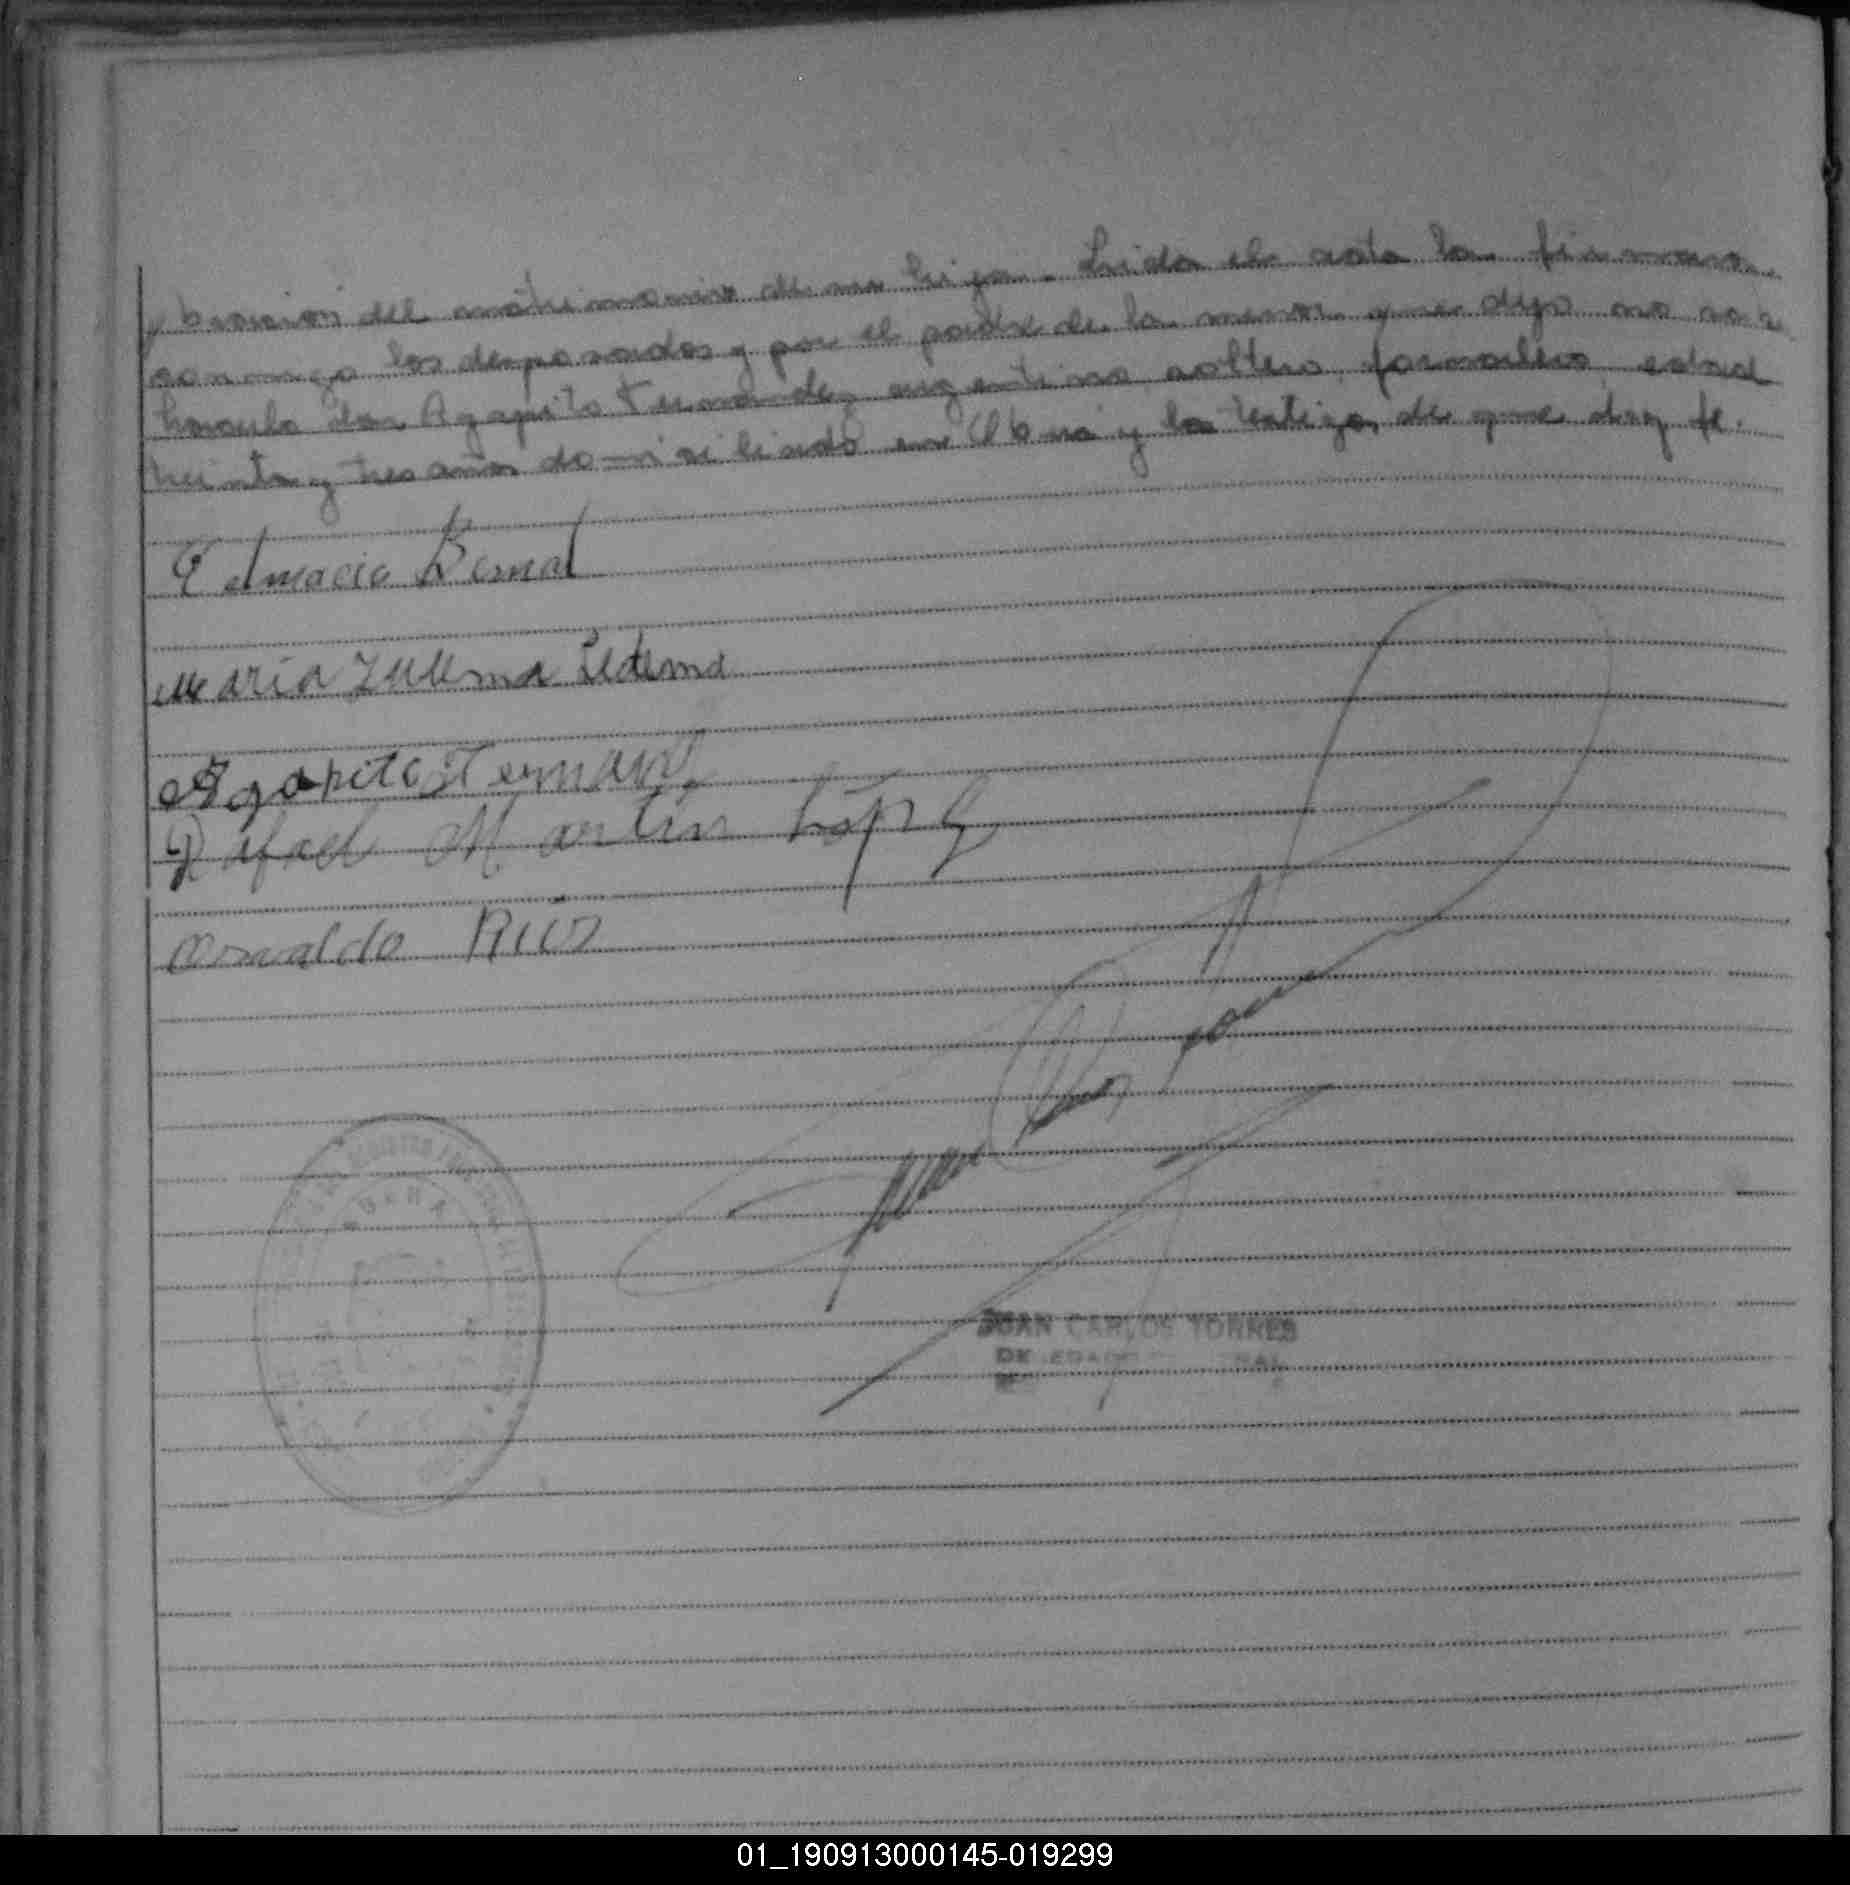 bración del matrimonio de su hija. Leida el acta la firmaron
conmigo los desposados y por el padre de la menor que dijo no sa
hacerlo don Agapito Fernandez argentino soltero, jornalero, edad
treinta y tres años domiciliado en Oberá y los testigos de que doy fe.
Bernal
Maria Zulema Ledema
Agapito Fernand
Rafael Martin López
Osvaldo Rios
OBERA
JUAN CARLOS TORRES
01_190913000145-019299